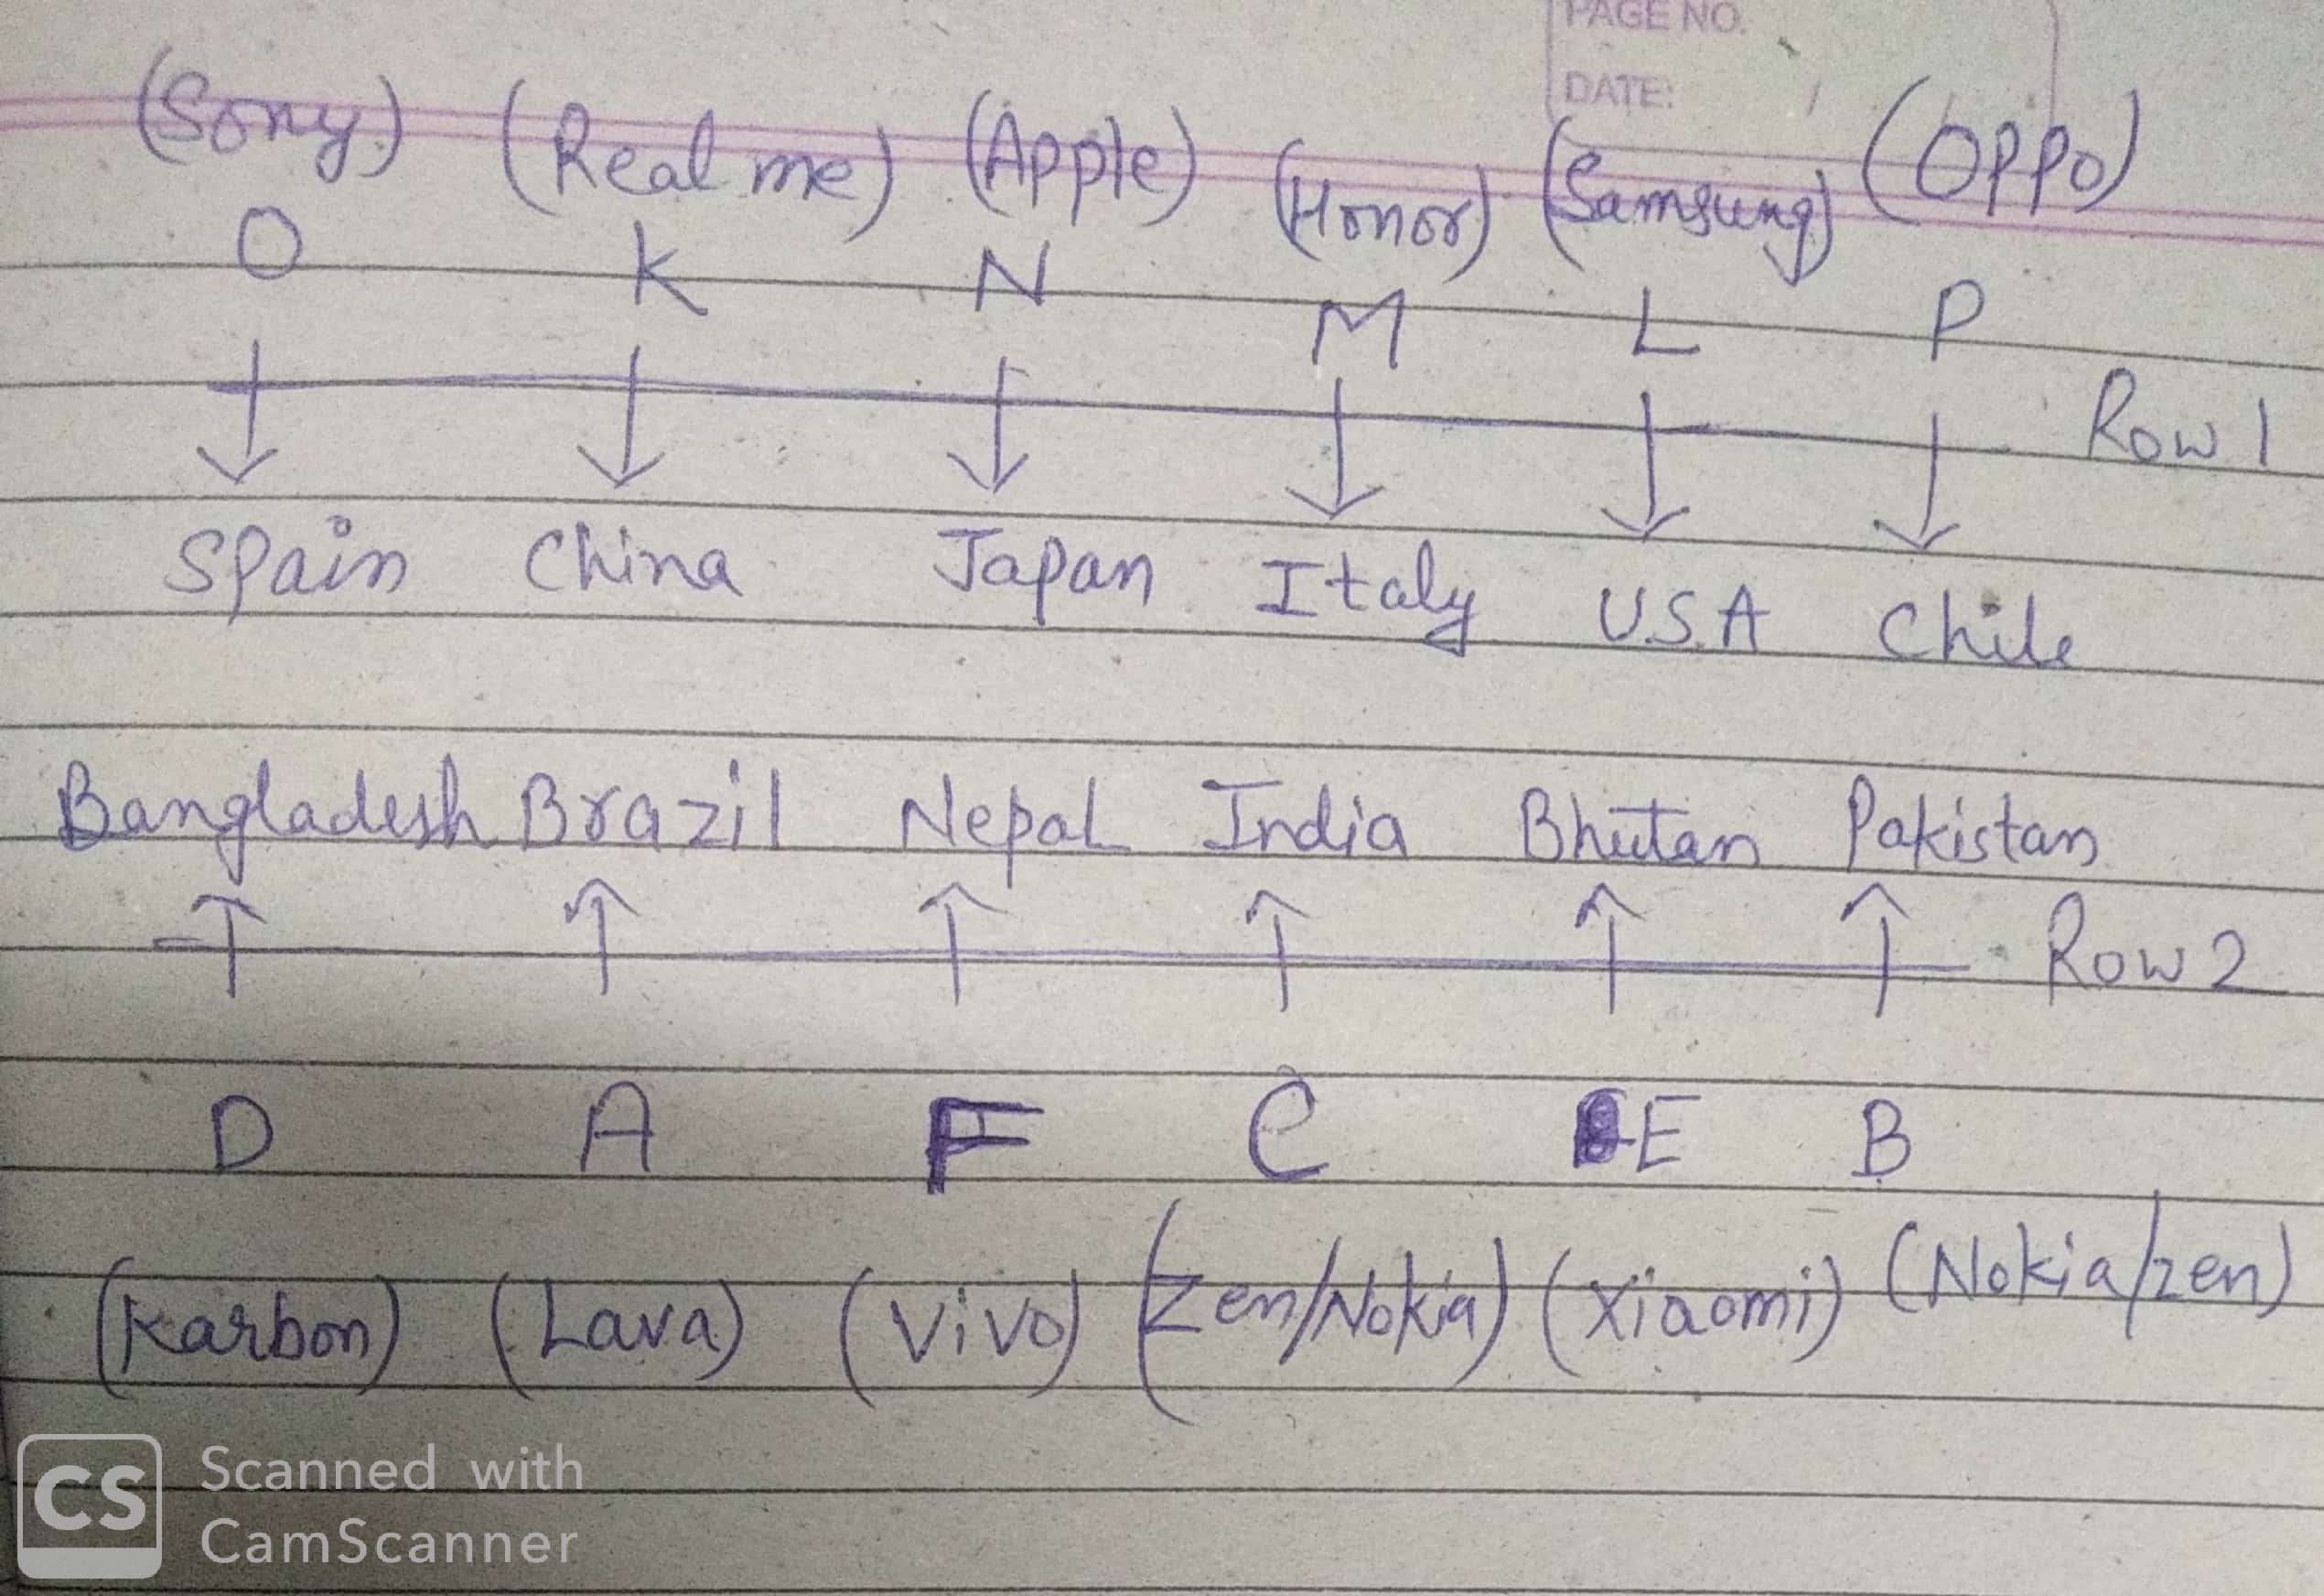 PAGE NO.
DATE:
(Sony) (Real me) (Apple) (Honor) (Samsung) (OPPO)
O K N M L P
Row 1
Spain China Japan Italy U.S.A Chile
Bangladesh Brazil Nepal India Bhutan Pakistan
Row 2
D A F C E B
(Karbon) (Lava) (Vivo) (Zen/Nokia) (Xiaomi) (Nokia/zen)
CS Scanned with
CamScanner